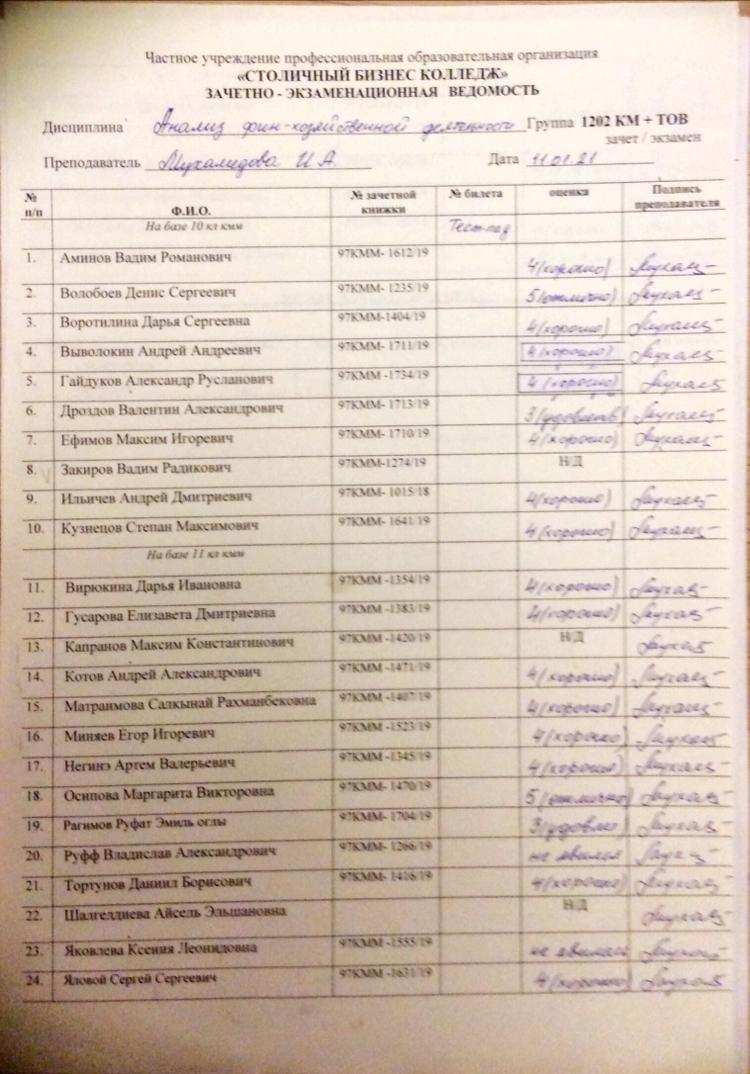 Частное учреждение профессиональная образовательная организация
«СТОЛИЧНЫЙ БИЗНЕС КОЛЛЕДЖ»
ЗАЧЕТНО - ЭКЗАМЕНАЦИОННАЯ ВЕДОМОСТЬ
Дисциплина Анализ фин-хозяйственной деятельности Группа 1202 КМ + ТОВ
зачет / экзамен
Преподаватель Мухамедова И.А. Дата 11.01.21
№ п/п Ф.И.О. № зачетной книжки № билета оценка Подпись преподавателя
На базе 10 кл кмм Тест-
1. Аминов Вадим Романович 97КММ- 1612/19 4(хорошо)
2. Волобоев Денис Сергеевич 97КММ- 1235/19 5(отлично)
3. Воротилина Дарья Сергеевна 97КММ-1404/19 4(хорошо)
4. Выволокин Андрей Андреевич 97КММ- 1711/19 4(хорошо)
5. Гайдуков Александр Русланович 97КММ -1734/19 4(хорошо)
6. Дроздов Валентин Александрович 97КММ- 1713/19 3(удовлетв)
7. Ефимов Максим Игоревич 97КММ- 1710/19 4(хорошо)
8. Закиров Вадим Радикович 97КММ-1274/19 Н/Д
9. Ильичев Андрей Дмитриевич 97КММ- 1015/18 4(хорошо)
10. Кузнецов Степан Максимович 97КММ- 1641/19 4(хорошо)
На базе 11 кл кмм
11. Вирюкина Дарья Ивановна 97КММ -1354/19 4(хорошо)
12. Гусарова Елизавета Дмитриевна 97КММ -1383/19 4(хорошо)
13. Капранов Максим Константинович 97КММ -1420/19 Н/Д
14. Котов Андрей Александрович 97КММ -1471/19 4(хорошо)
15. Матраимова Салкынай Рахманбековна 97КММ -1407/19 4(хорошо)
16. Миняев Егор Игоревич 97КММ -1523/19 4(хорошо)
17. Негинэ Артем Валерьевич 97КММ -1345/19 4(хорошо)
18. Осипова Маргарита Викторовна 97КММ- 1470/19 5(отлично)
19. Рагимов Руфат Эмиль оглы 97КММ- 1704/19 3(удовлет)
20. Руфф Владислав Александрович 97КММ- 1266/19 не явился
21. Тортунов Даниил Борисович 97КММ- 1416/19 4(хорошо)
22. Шалгелдиева Айсель Эльшановна Н/Д
23. Яковлева Ксения Леонидовна 97КММ -1555/19 не явилась
24. Яловой Сергей Сергеевич 97КММ -1631/19 4(хорошо)